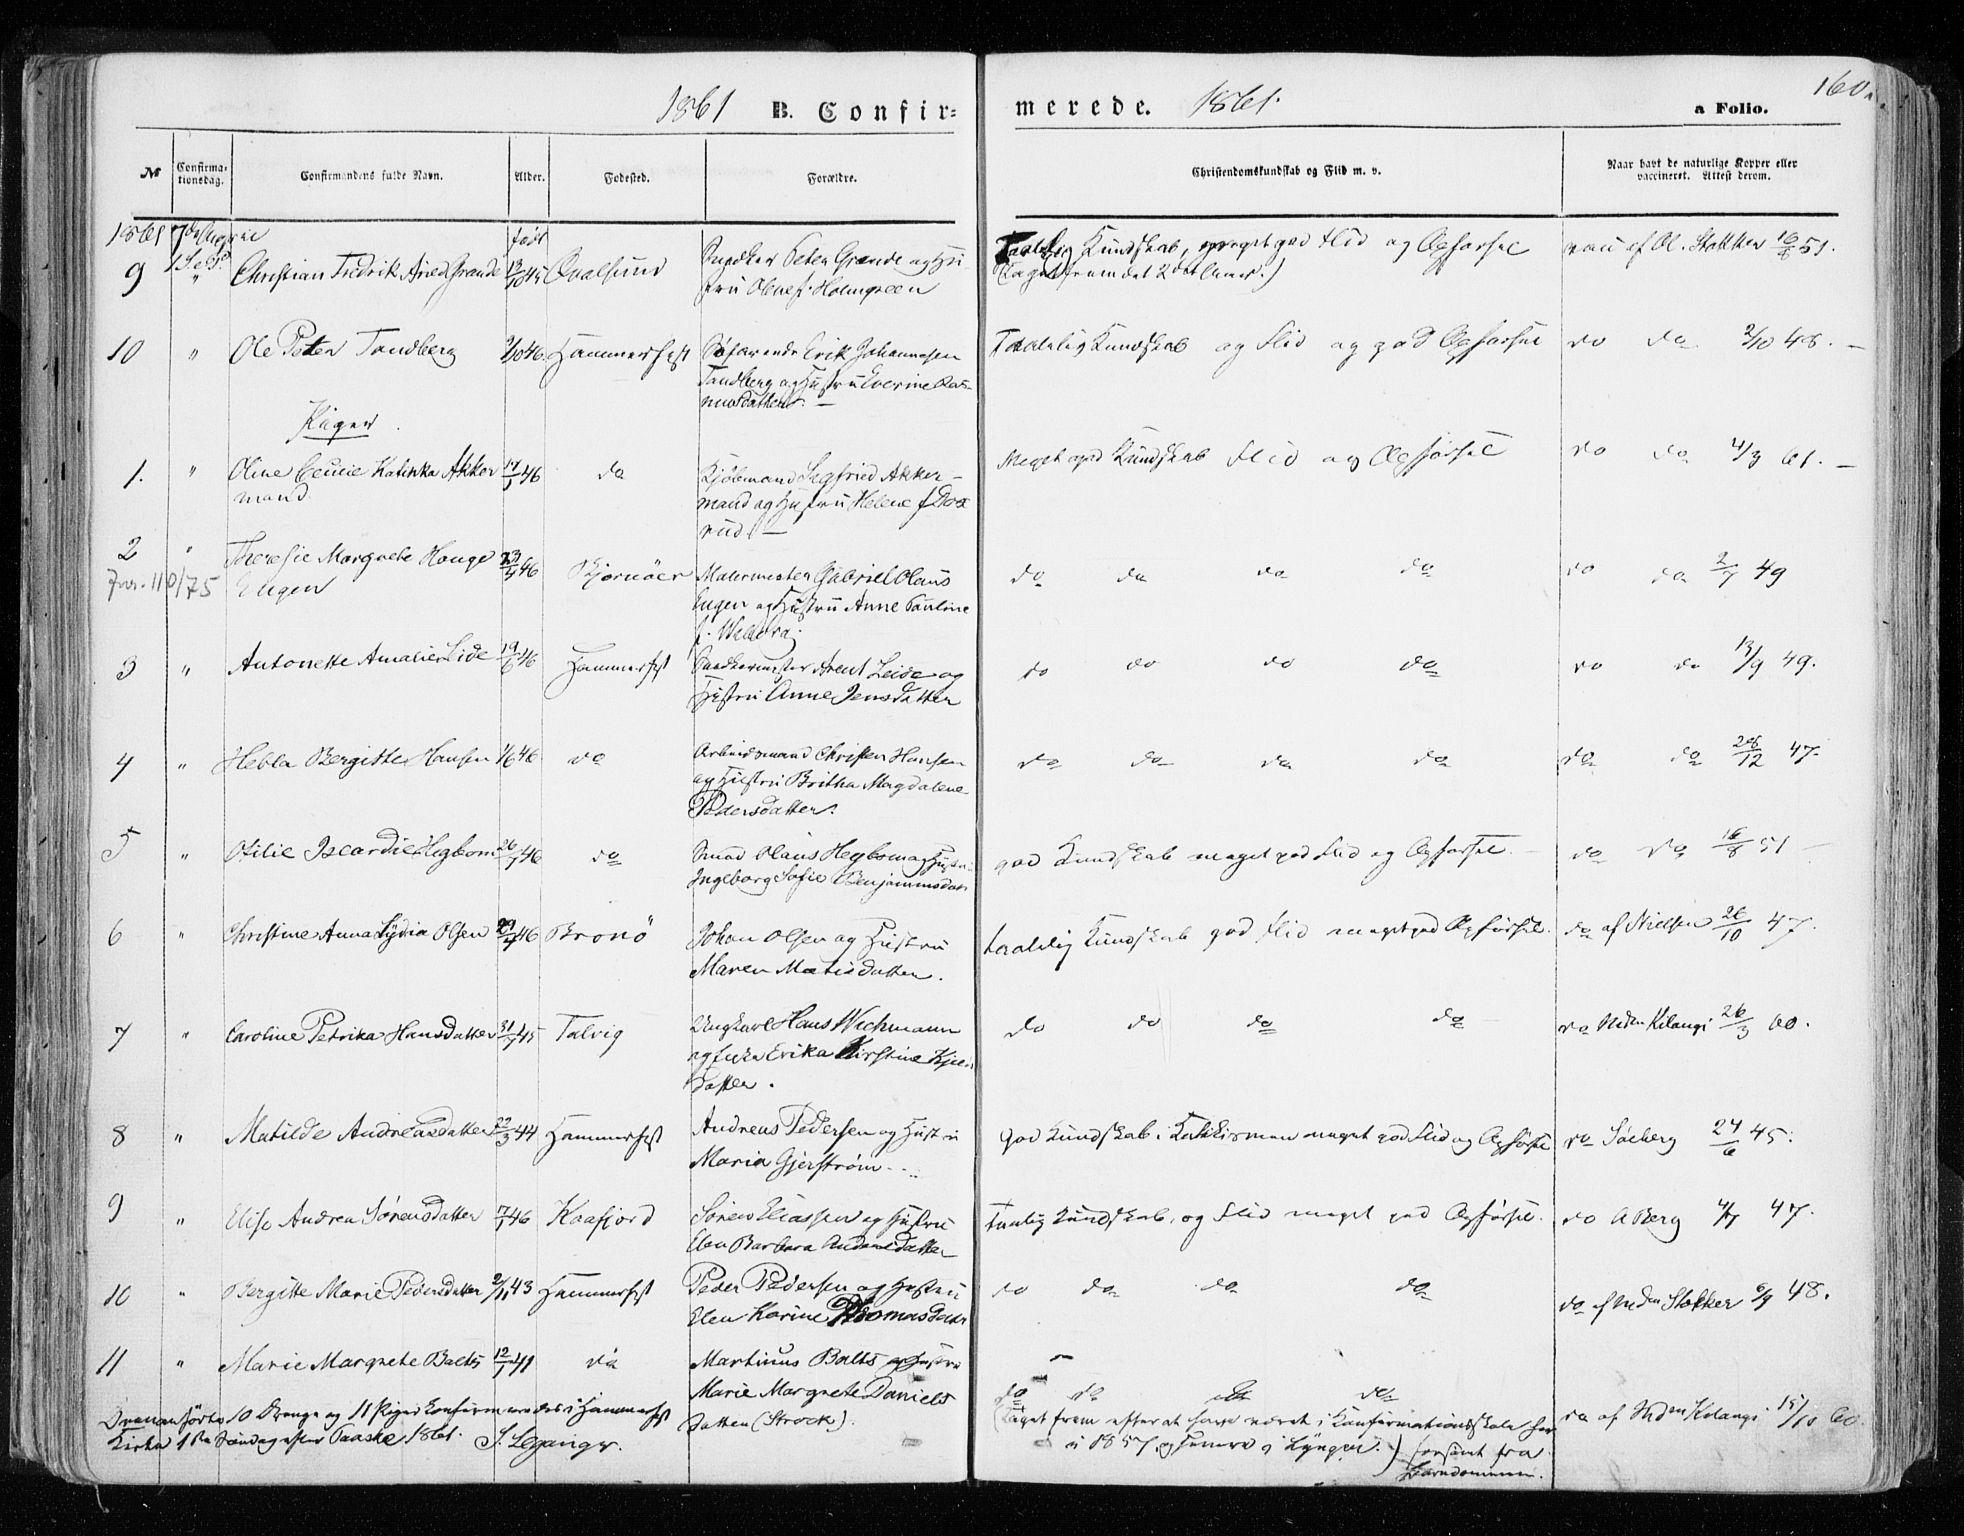 160
1861 B. Confir= merede. 1861. a Folio.
№ Confirma-tionsdag. Confirmandens fulde Navn. Alder. Fødested. Forældre. Christendomskundskab og Flid m. v. Naar havt de naturlige Kopper eller vaccineret. Attest derom.
1861 7de April født
1 S. e. P.
9 " Christian Fredrik Grande 13/10 45 Qvalsund Peter Grande og Hu
stru f. Holmgreen
Taalelig Kundskab, meget god Flid og Opførsel
vac af Ol. Stokker 16/8 51.
10 " Ole Peter Tandberg 9/10 46 Hammerfest Søfarende Erik Johannesen
Tandberg og Hustru Everine Ras-
musdatter. —
Taalelig Kundskab og Flid og god Opførsel do do 2/10 48. —
Piger.
1. " Oline Katinka Akker
mand. 17/5 46 do Kjøbmand Segfried Akker-
mand og Hustru Helene f.
rud. —
Meget god Kundskab Flid og Opførsel do do 4/3 61. —
2 " Theresie Margrete Hauge
Eugen 23/4 46 Bjørnöer Malermester Gabriel Olaus
Eugen og Hustru Anne Pauline
f.
do do do do do do 2/7 49
Jnr. 110/75
3 " Antonette Amalie Lide 19/6 46 Hammerfest Arent Leide og
Hustru Anne Jensdatter
do do do do do do 13/9 49.
4 " Hebla Bergitte Hansen 1/6 46 do Arbeidsmand Christen Hansen
og Hustru Britha Magdalene
Pedersdatter.
do do do do do do 28/12 47.
5 " Otilie Iscardie Hegbom 26/7 46 do Smed Olaus Hegbom og Hustru
Ingeborg Sofie Benjaminsdatt
god Kundskab meget god Flid og Opførsel. — do do 16/8 51 —
6 " Christine Anna Lydia Olsen 46 Bronö Johan Olsen og Hustru
Maren Matisdatter.
taalelig Kundskab god Flid meget god Opførsel. do af Nielsen 26/10 47.
7 " Caroline Petrika Hansdatter 31/7 45 Talvig Ungkarl Hans Wichmann
og Enke Erika Kirstine
datter.
do do do do do Kilangi 26/3 60.
8 " Matilde Andreasdatter 22/3 44 Hammerfest Andreas Pedersen og Hustru
Maria Gjerstrøm
god Kundskab i meget god Flid og Opførsel do Soeberg 24/6 45.
9 " Elise Andrea Sørensdatter 7/1 46 Kaafjord Søren Eliassen og Hustru
Elen Barbara
Kundskab, og Flid meget god Opførsel. do A Berg 4/7 47.
10 " Bergitte Marie Pedersdatter 2/11 43 Hammerfest Peder Pedersen og Hustru
Elen Karine Thomasdatt
do do do do do af Stokker 6/9 48.
11 " Marie Margrete Balts 12/1 41 do Martinus Balts og Hustru
Marie Margrete Daniels
datter (Strock).
do do do do
taget frem efter at have været i Konfirmationsskole her
i 1857 og senere i Lyngen.) forsømt fra
Barndommen.
do af Kilangi 15/10 60
Ovenanførte 10 Drenge og 11 Piger konfirmeredes i Hammerfest
Kirke 1ste Søndag efter Paaske 1861. S. Leganger.